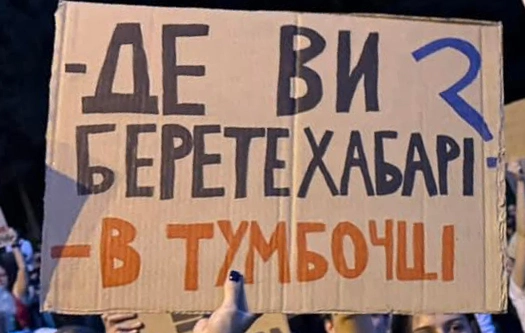 -ДЕ ВИ
БЕРЕТЕ ХАБАРІ?
-В ТУМБОЧЦІ